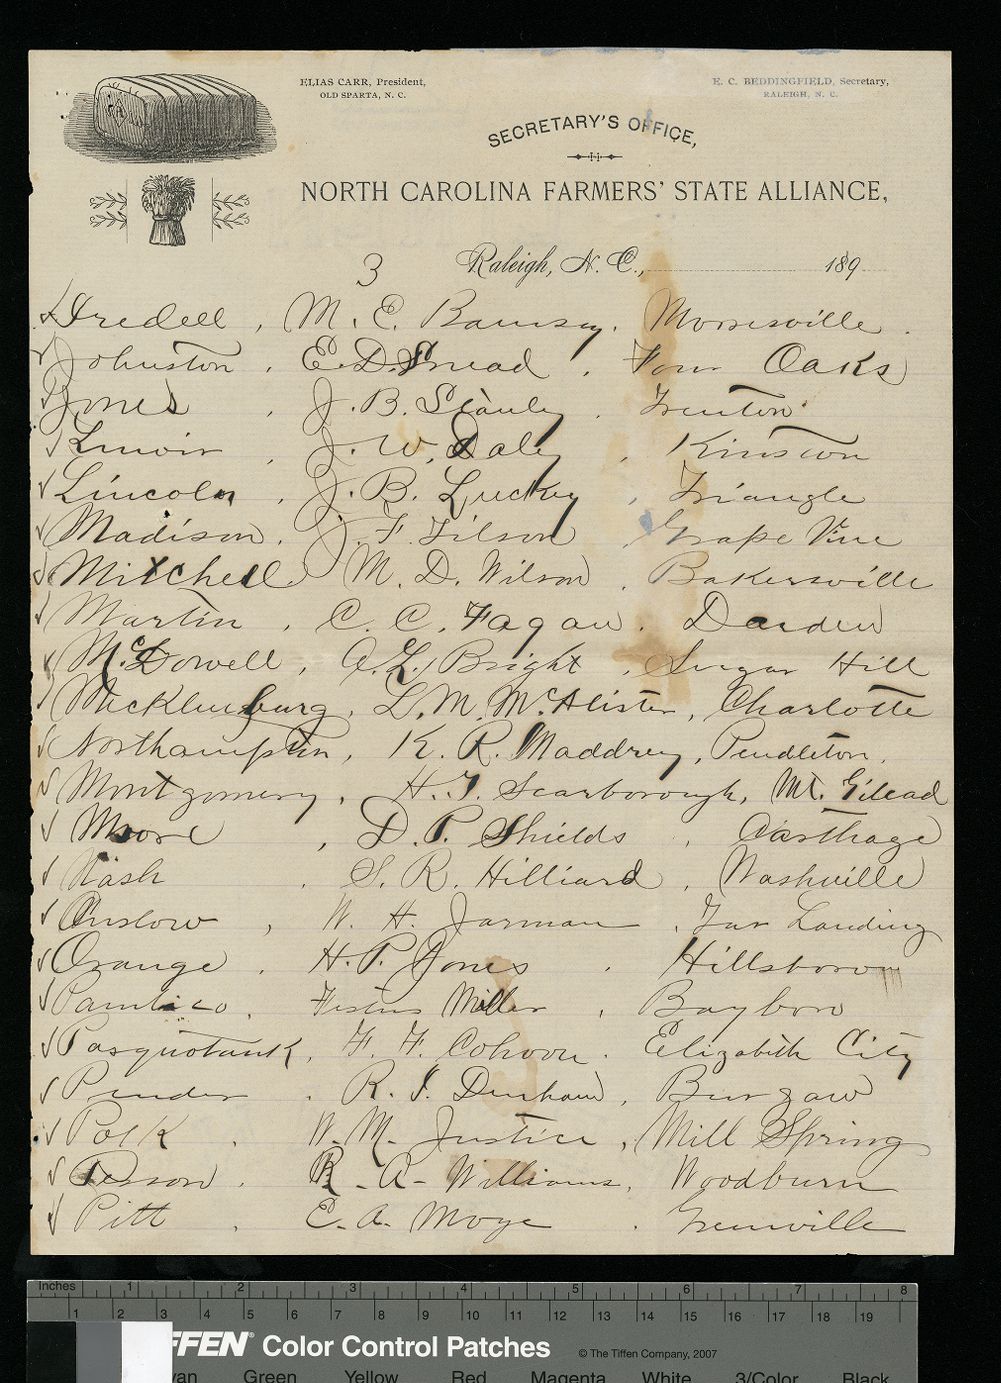 ELIAS CARR, President,
OLD SPARTA, N. C.
E. C. BEDDINGFIELD, Secretary,
RALEIGH, N. C.
SECRETARY'S OFFICE,
NORTH CAROLINA FARMERS' STATE ALLIANCE,
Raleigh, N. C., 189
3
Iredell, M. E. Ramsey. Mooresville.
Johnston, E. D. Snead, Four Oaks
Jones, J. B. Stanly. Trenton
Lenoir, J. W. Daley, Kinston
Lincoln, J. B. Luckey, Triangle
Madison, J. F. Tilson, Grape Vine
Mitchell M. D. Wilson, Bakersville
Martin, C. C. Fagan. Darden
McDowell, A. L. Bright, Sugar Hill
Mecklenburg, L. M. McAlister, Charlotte
Northampton, K. R. Maddrey, Pendleton.
Montgomery, H. T. Scarborough, Mt. Gilead
Moore, D. P. Shields, Carthage
Nash. S. R. Hilliard, Nashville
Onslow, W. H. Jarman, Tar Landing
Orange, H. P. Jones. Hillsboro
Pamlico, Festus Miller, Bayboro
Pasquotank, F. F. Cohoon. Elizabeth City
Pender. R. J. Durham, Burgaw
Polk. W. M. Justice, Mill Spring
Person. R. A. Williams, Woodburn
Pitt. E. A. Moye. Greenville
Inches 1 2 3 4 5 6 7 8
1 2 3 4 5 6 7 8 9 10 11 12 13 14 15 16 17 18 19
FFEN® Color Control Patches © The Tiffen Company, 2007
yan Green Yellow Red Magenta White 3/Color Black